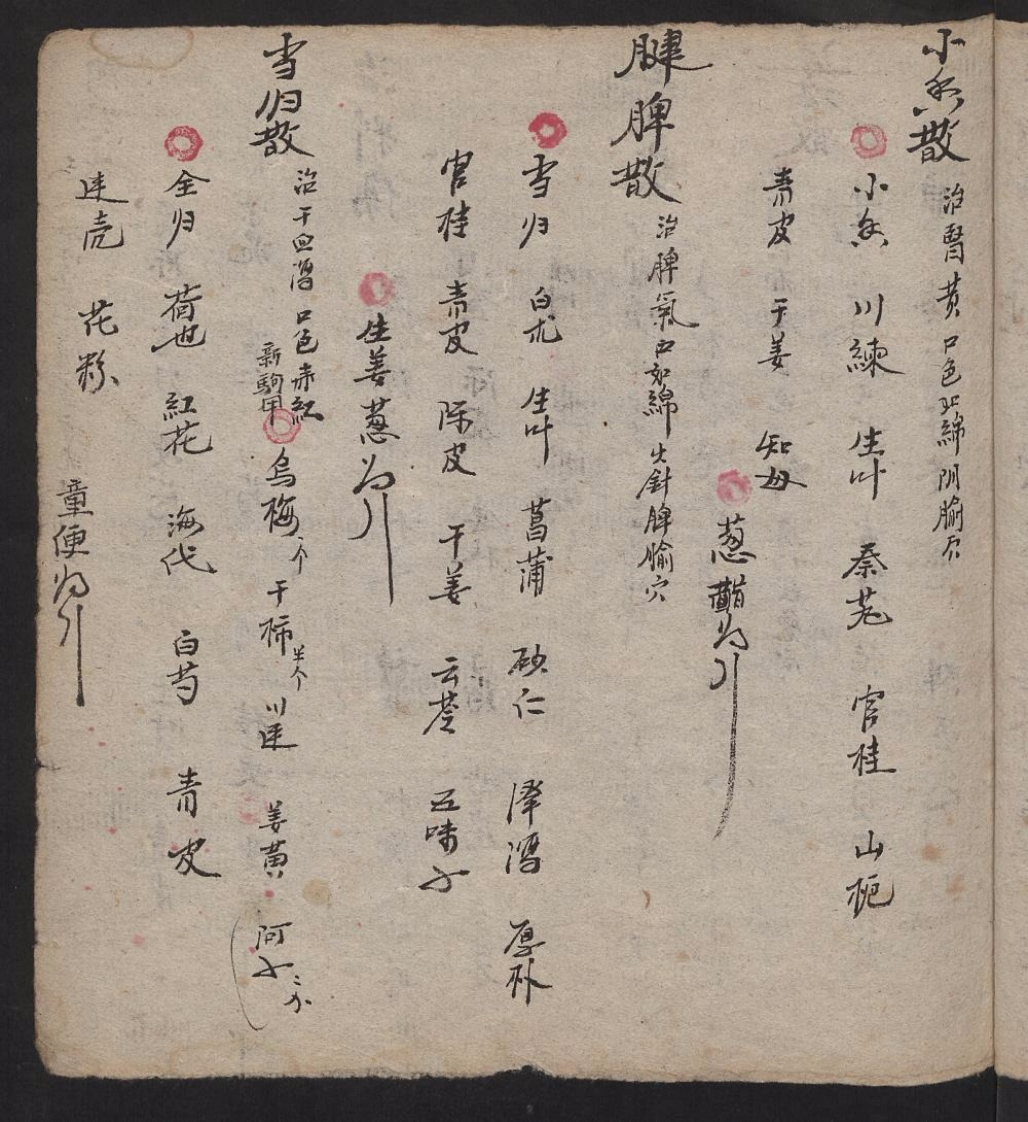 小香散 治腎黄 口色如綿 阴腧穴
小香 川練 生叶 秦艽 官桂 山栀
青皮 干姜 知母
葱 醋为引
脾脾散 治脾氣 口如綿 火針脾腧穴
雪归 白朮 生叶 菖蒲 砂仁 泽泻 厚朴
官桂 青皮 陈皮 干姜 云苓 五味子
生姜葱为引
雪归散 治干血泻 口色赤紅
新駒用 烏梅二个 干柿半个 川連 姜黄 诃子二分
全归 荷也 紅花 海代 白芍 青皮
連壳 花粉
童便为引